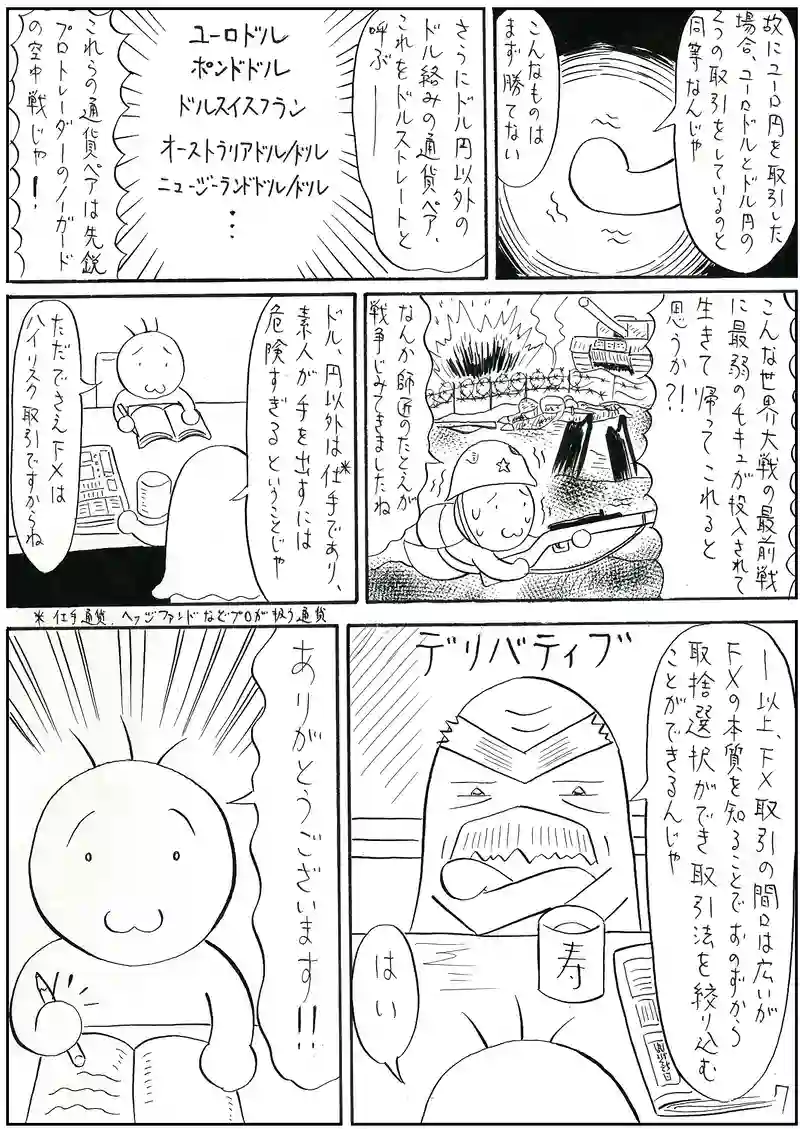 故にユーロ円を取引した
場合、ユーロドルとドル円の
2つの取引をしているのと
同等なんじゃ
こんなものは
まず勝てない
さらにドル円以外の
ドル絡みの通貨ペア、
これをドルストレートと
呼ぶ――
ユーロドル
ポンドドル
ドルスイスフラン
オーストラリアドル/ドル
ニュージーランドドル/ドル
・・・
これらの通貨ペアは先鋭
プロトレーダーのノーガード
の空中戦じゃ!
こんな世界大戦の最前戦
に最弱のモキュが投入されて
生きて帰ってこれると
思うか?!
なんか師匠のたとえが
戦争じみてきましたね
ドル、円以外は仕手*であり、
素人が手を出すには
危険すぎるということじゃ
ただでさえFXは
ハイリスク取引ですからね
* 仕手通貨 ヘッジファンドなどプロが扱う通貨
デリバティブ
―以上、FX取引の間口は広いが
FXの本質を知ることでおのずから
取捨選択ができ取引法を絞り込む
ことができるんじゃ
寿
はい
ありがとうございます!!
7